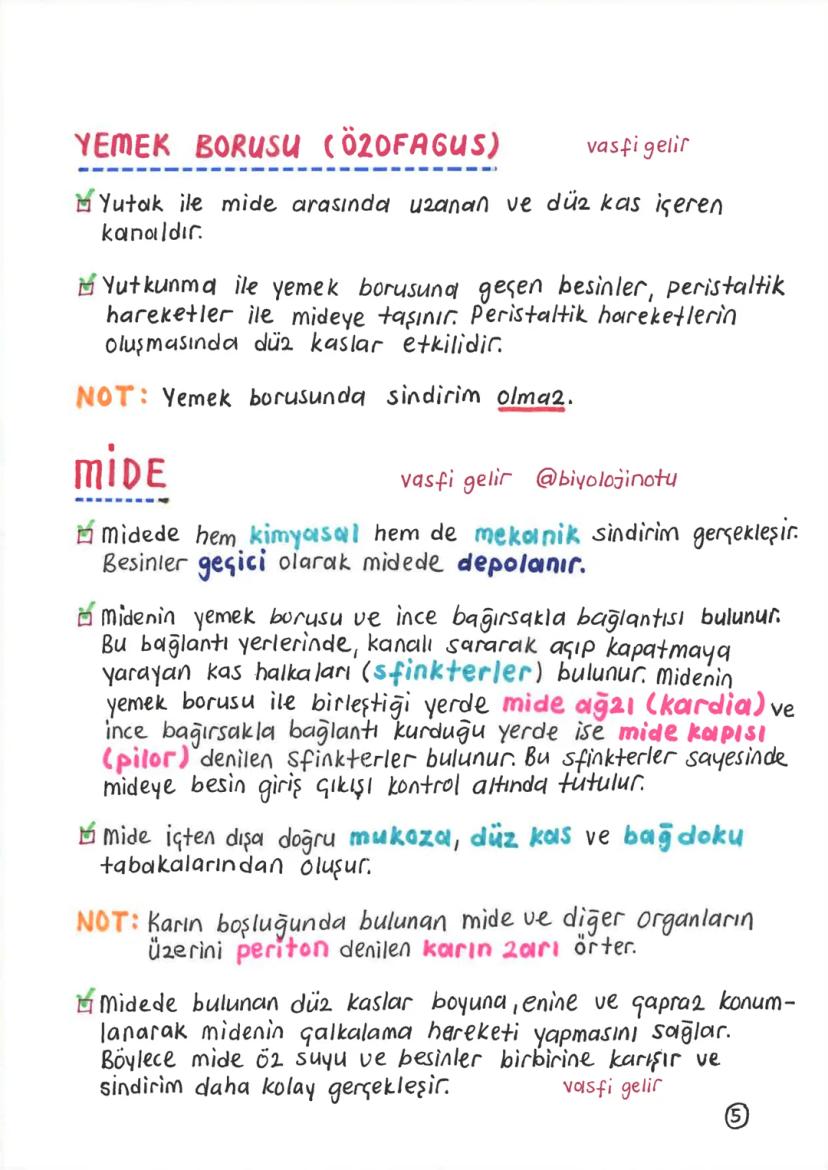 YEMEK BORUSU (ÖZOFAGUS) vasfi gelir
Yutak ile mide arasında uzanan ve düz kas içeren
kanaldır.
Yutkunma ile yemek borusuna geçen besinler, peristaltik
hareketler ile mideye taşınır. Peristaltik hareketlerin
oluşmasında düz kaslar etkilidir.
NOT: Yemek borusunda sindirim olmaz.
MİDE vasfi gelir @biyolojinotu
Midede hem kimyasal hem de mekanik sindirim gerçekleşir.
Besinler geçici olarak midede depolanır.
Midenin yemek borusu ve ince bağırsakla bağlantısı bulunur.
Bu bağlantı yerlerinde, kanalı sararak açıp kapatmaya
yarayan kas halkaları (sfinkterler) bulunur. Midenin
yemek borusu ile birleştiği yerde mide ağzı (kardia) ve
ince bağırsakla bağlantı kurduğu yerde ise mide kapısı
(pilor) denilen sfinkterler bulunur. Bu sfinkterler sayesinde
mideye besin giriş çıkışı kontrol altında tutulur.
Mide içten dışa doğru mukoza, düz kas ve bağ doku
tabakalarından oluşur.
NOT: Karın boşluğunda bulunan mide ve diğer organların
üzerini periton denilen karın zarı örter.
Midede bulunan düz kaslar boyuna, enine ve çapraz konum-
lanarak midenin çalkalama hareketi yapmasını sağlar.
Böylece mide öz suyu ve besinler birbirine karışır ve
sindirim daha kolay gerçekleşir. vasfi gelir
5